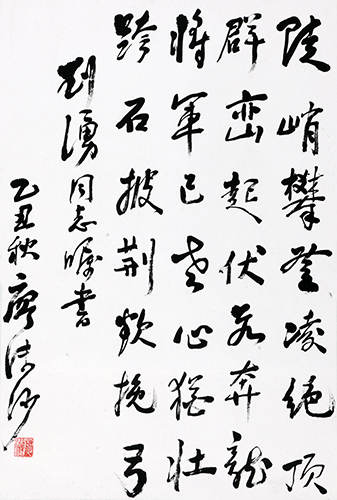 陡峭攀登凌绝顶
群峦起伏若奔龙
将军已老心犹壮
跨石披荆欲挽弓
刘湧同志嘱书
乙丑秋廖沫沙